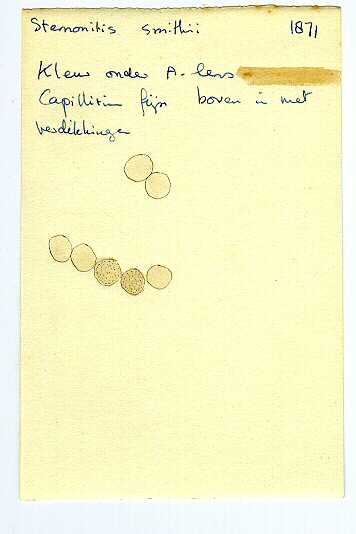 Stemonitis smithii 1871
Kleur onder A. lens
Capillitium fijn boven in met
verdikkingen